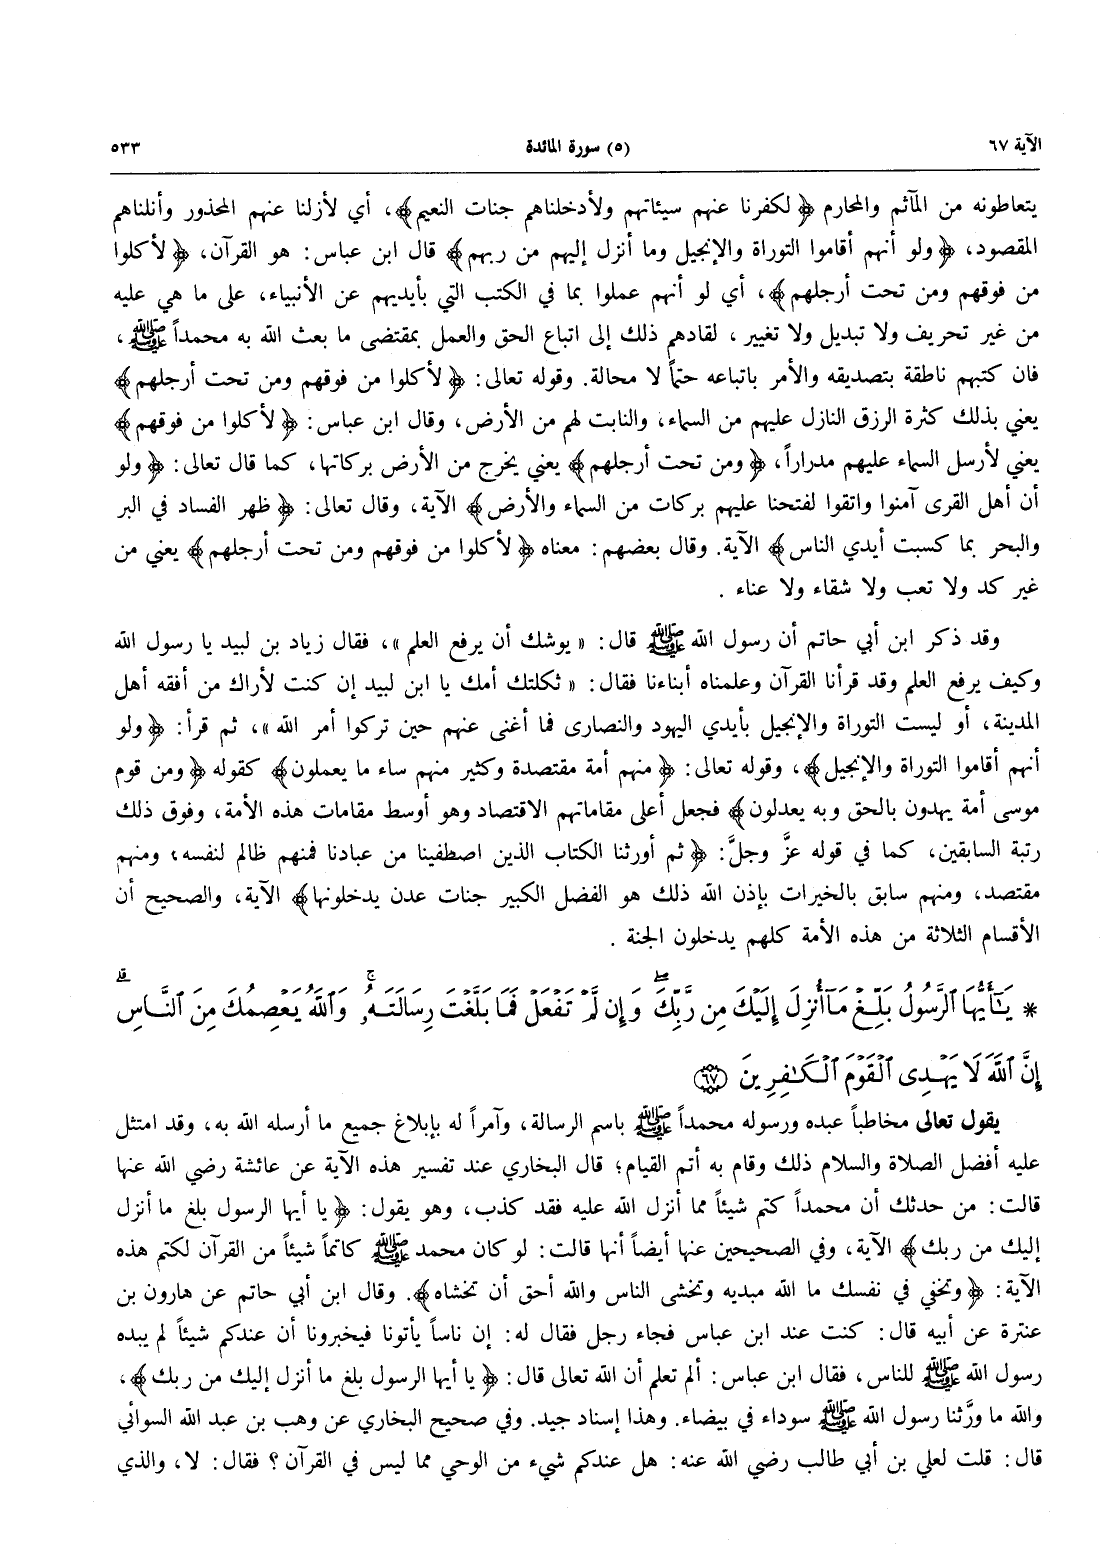 الآية ٦٧ (٥) سورة المائدة ٥٣٣
يتعاطونه من المآثم والمحارم ﴿ لكفرنا عنهم سيئاتهم ولأدخلناهم جنات النعيم﴾، أي لأزلنا عنهم المحذور وأنلناهم
المقصود، ﴿ولو أنهم أقاموا التوراة والإنجيل وما أنزل إليهم من ربهم﴾ قال ابن عباس: هو القرآن، ﴿ لأكلوا
من فوقهم ومن تحت أرجلهم﴾، أي لو أنهم عملوا بما في الكتب التي بأيديهم عن الأنبياء، على ما هي عليه
من غير تحريف ولا تبديل ولا تغيير ، لقادهم ذلك إلى اتباع الحق والعمل بمقتضى ما بعث الله به محمداً ﷺ ،
فان كتبهم ناطقة بتصديقه والأمر باتباعه حتماً لا محالة. وقوله تعالى: ﴿ لأكلوا من فوقهم ومن تحت أرجلهم﴾
يعني بذلك كثرة الرزق النازل عليهم من السماء، والنابت لهم من الأرض، وقال ابن عباس: ﴿ لأكلوا من فوقهم﴾
يعني لأرسل السماء عليهم مدراراً، ﴿ ومن تحت أرجلهم﴾ يعني يخرج من الأرض بركاتها، كما قال تعالى: ﴿ولو
أن أهل القرى آمنوا واتقوا لفتحنا عليهم بركات من السماء والأرض﴾ الآية، وقال تعالى: ﴿ ظهر الفساد في البر
والبحر بما كسبت أيدي الناس﴾ الآية. وقال بعضهم: معناه ﴿ لأكلوا من فوقهم ومن تحت أرجلهم﴾ يعني من
غير كد ولا تعب ولا شقاء ولا عناء .
وقد ذكر ابن أبي حاتم أن رسول الله ﷺ قال: « يوشك أن يرفع العلم »، فقال زياد بن لبيد يا رسول الله
وكيف يرفع العلم وقد قرأنا القرآن وعلمناه أبناءنا فقال: « ثكلتك أمك يا ابن لبيد إن كنت لأراك من أفقه أهل
المدينة، أو ليست التوراة والإنجيل بأيدي اليهود والنصارى فما أغنى عنهم حين تركوا أمر الله »، ثم قرأ: ﴿ولو
أنهم أقاموا التوراة والإنجيل﴾، وقوله تعالى: ﴿ منهم أمة مقتصدة وكثير منهم ساء ما يعملون﴾ كقوله ﴿ومن قوم
موسى أمة يهدون بالحق وبه يعدلون﴾ فجعل أعلى مقاماتهم الاقتصاد وهو أوسط مقامات هذه الأمة، وفوق ذلك
رتبة السابقين، كما في قوله عزَّ وجلَّ: ﴿ ثم أورثنا الكتاب الذين اصطفينا من عبادنا فمنهم ظالم لنفسه؛ ومنهم
مقتصد، ومنهم سابق بالخيرات بإذن الله ذلك هو الفضل الكبير جنات عدن يدخلونها﴾ الآية، والصحيح أن
الأقسام الثلاثة من هذه الأمة كلهم يدخلون الجنة .
* يَـٰٓأَيُّهَا ٱلرَّسُولُ بَلِّغْ مَآ أُنزِلَ إِلَيْكَ مِن رَّبِّكَ ۖ وَإِن لَّمْ تَفْعَلْ فَمَا بَلَّغْتَ رِسَالَتَهُۥ ۚ وَٱللَّهُ يَعْصِمُكَ مِنَ ٱلنَّاسِ ۗ
إِنَّ ٱللَّهَ لَا يَهْدِى ٱلْقَوْمَ ٱلْكَـٰفِرِينَ (٦٧)
يقول تعالى مخاطباً عبده ورسوله محمداً ﷺ باسم الرسالة، وآمراً له بإبلاغ جميع ما أرسله الله به، وقد امتثل
عليه أفضل الصلاة والسلام ذلك وقام به أتم القيام؛ قال البخاري عند تفسير هذه الآية عن عائشة رضي الله عنها
قالت: من حدثك أن محمداً كتم شيئاً مما أنزل الله عليه فقد كذب، وهو يقول: ﴿يا أيها الرسول بلغ ما أنزل
إليك من ربك﴾ الآية، وفي الصحيحين عنها أيضاً أنها قالت: لو كان محمد ﷺ كاتماً شيئاً من القرآن لكتم هذه
الآية: ﴿وتخفي في نفسك ما الله مبديه وتخشى الناس والله أحق أن تخشاه﴾. وقال ابن أبي حاتم عن هارون بن
عنترة عن أبيه قال: كنت عند ابن عباس فجاء رجل فقال له: إن ناساً يأتونا فيخبرونا أن عندكم شيئاً لم يبده
رسول الله ﷺ للناس، فقال ابن عباس: ألم تعلم أن الله تعالى قال: ﴿ يا أيها الرسول بلغ ما أنزل إليك من ربك﴾،
والله ما ورَّثنا رسول الله ﷺ سوداء في بيضاء. وهذا إسناد جيد. وفي صحيح البخاري عن وهب بن عبد الله السوائي
قال: قلت لعلي بن أبي طالب رضي الله عنه: هل عندكم شيء من الوحي مما ليس في القرآن ؟ فقال: لا، والذي